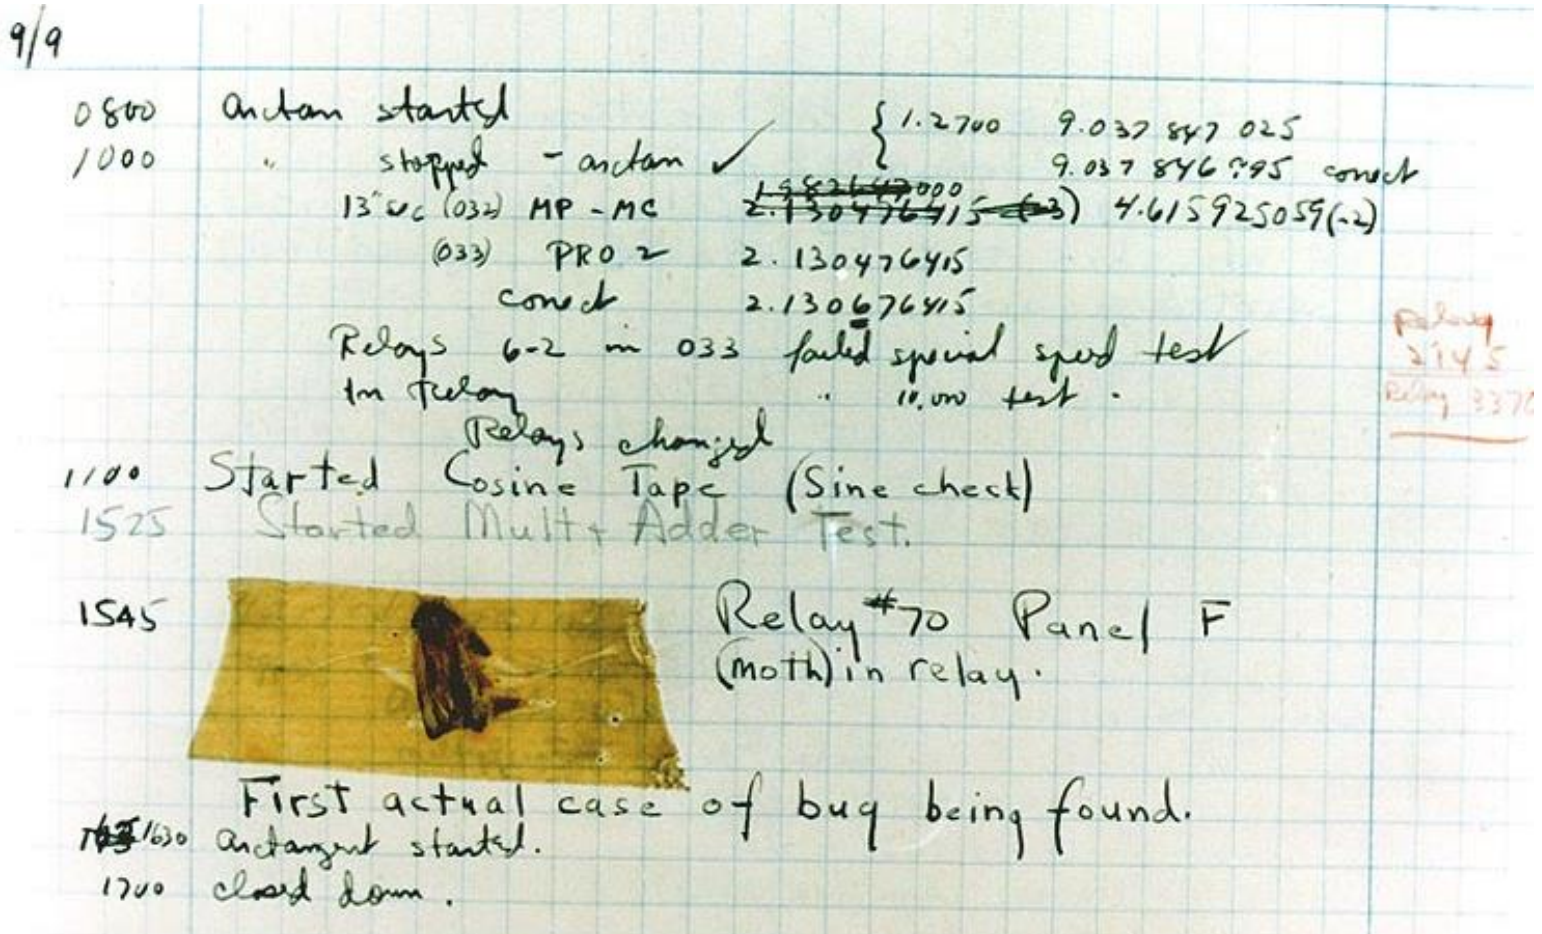 9/9
0800 arctan started { 1.2700 9.037 847 025
1000 " stopped - arctan ✓ 9.037 846 795 conect
1982647000
13"uc (032) MP - MC 2.130476415 (-3) 4.615925059(-2)
(033) PRO 2 2.130476415
conect 2.130676415
Relays 6-2 in 033 failed special speed test
In Relay " 10,000 test .
Relays changed
Relay
2145
Relay 3370
1100 Started Cosine Tape (Sine check)
1525 Started Mult + Adder Test.
1545 Relay #70 Panel F
(moth) in relay.
First actual case of bug being found.
1630 arctangent started.
1700 closed down.